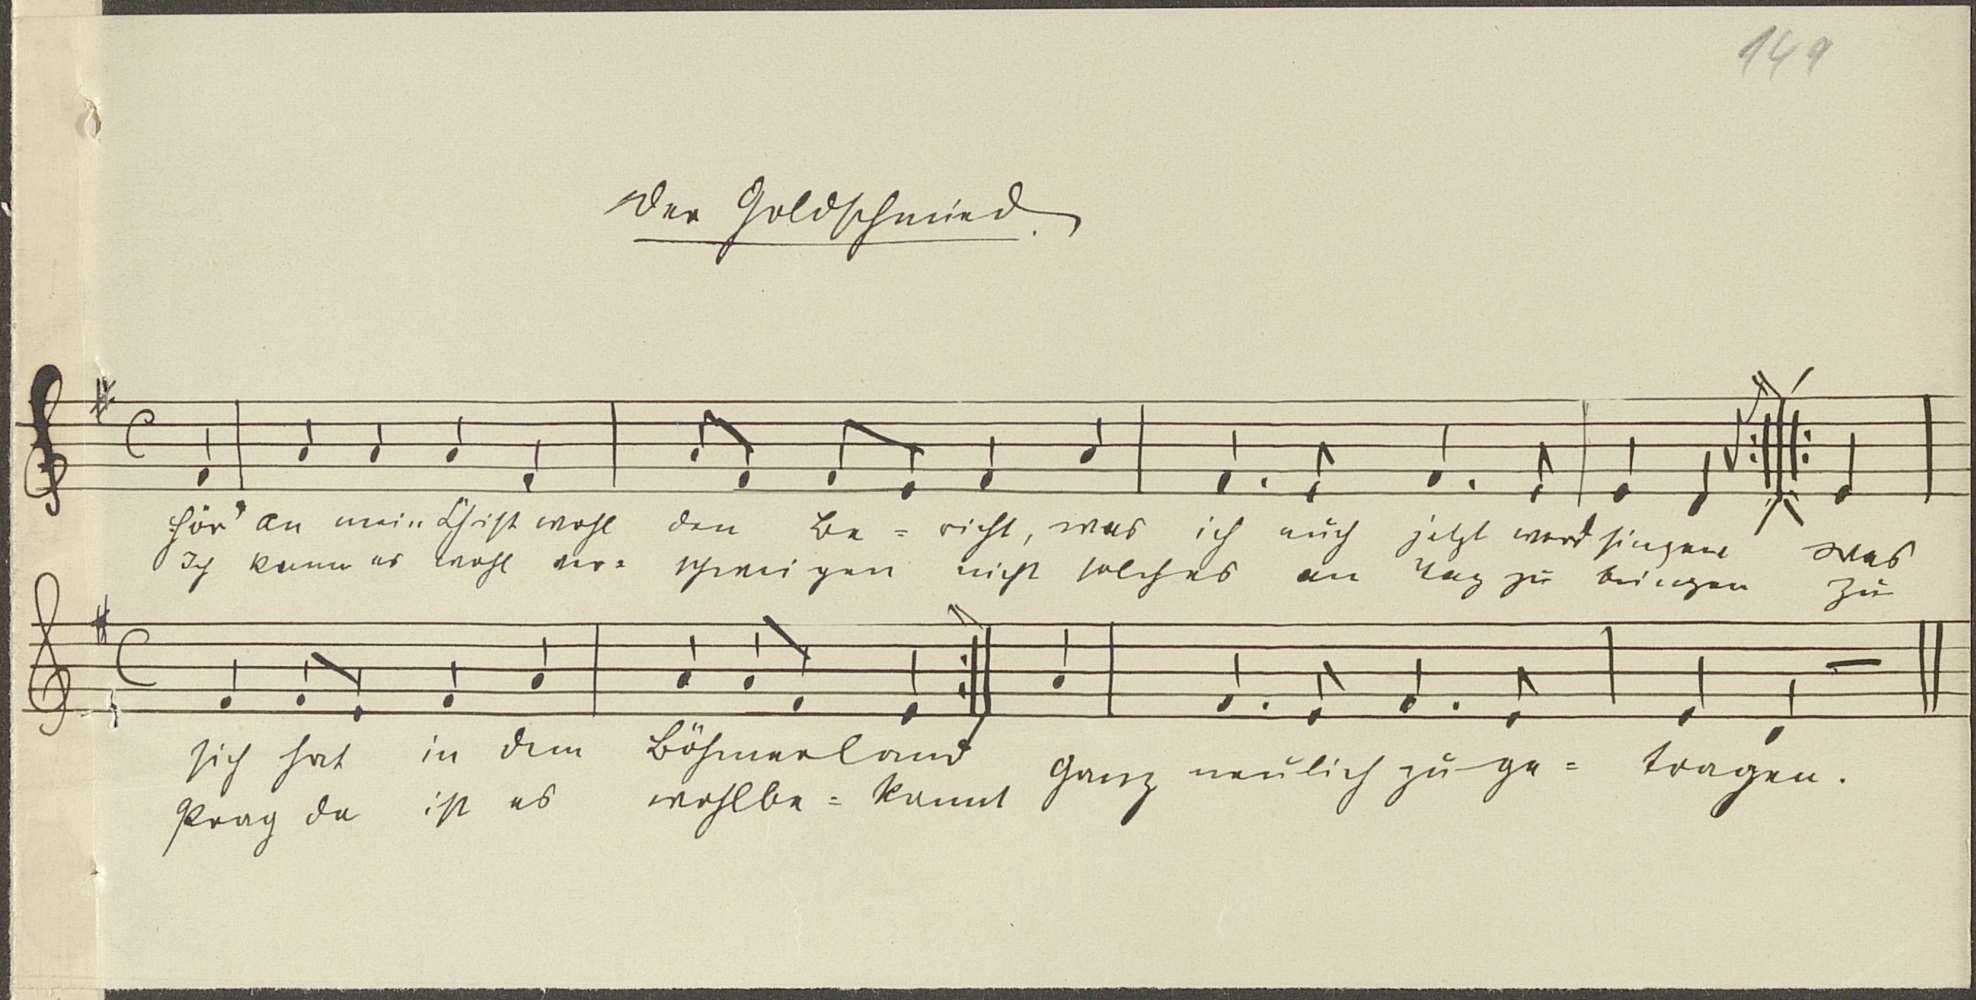 149
Der Goldschmied.
Hör' an mein Christ wohl den Be = richt, was ich euch jetzt werd singen was
Ich kann es wohl ver = schweigen nicht solches an Tag zu bringen zu
sich hat in dem Böhmerland Ganz neulich zu ge = tragen.
Prag da ist es wohlbe = kannt